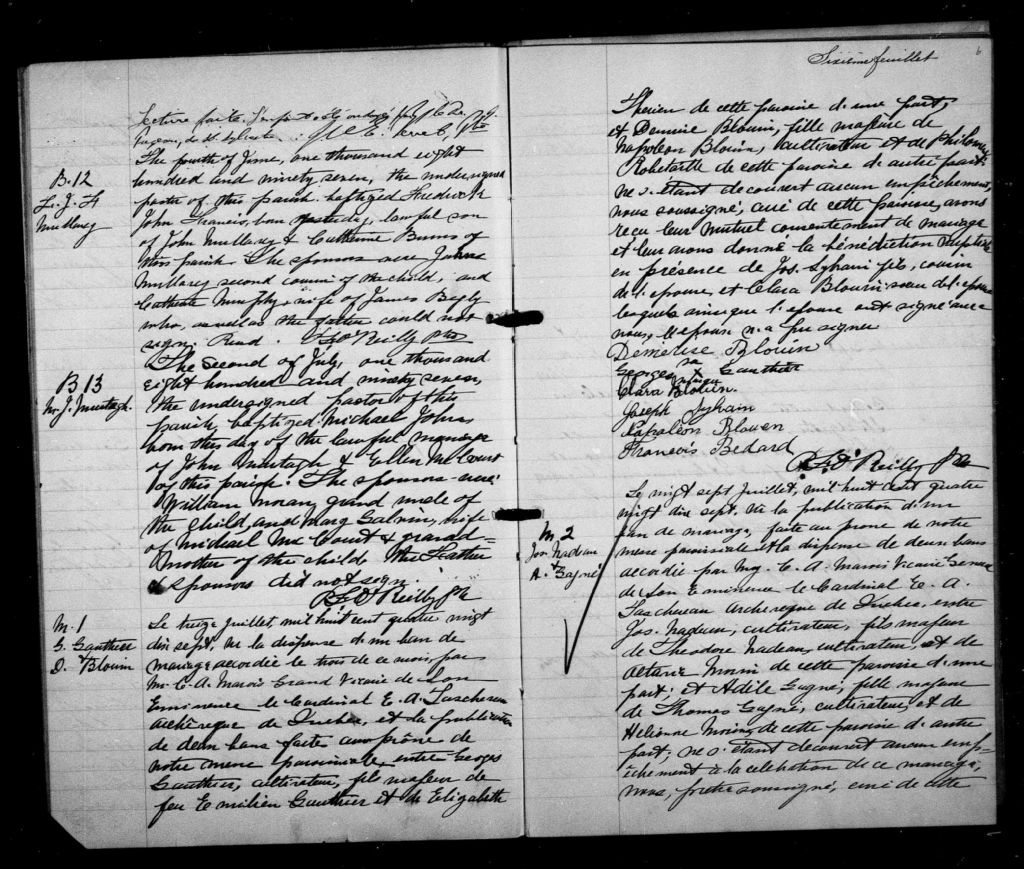 lecture faite.
B.12
F. J. F
Mullary
The fourth of June, one thousand eight
hundred and ninety seven, the undersigned
pastor of this parish baptized Frederick
John Francis, born yesterday, lawful son
of John Mullary & Catherine Burns of
this parish. The sponsors were
Mullary second cousin of the child, and
Catherine Murphy, wife of James Begly
who, as well as the father could not
sign. Read. O'Reilly Ptr
B 13
M. J. Murtagh.
The second of July, one thousand
eight hundred and ninety seven,
the undersigned pastor of this
parish, baptized Michael John,
born this day of the lawful marriage
of John Murtagh & Ellen McCourt
of this parish. The sponsors were
William Moran, grand uncle of
the child, and Mary Galvin, wife
of Michael McCourt & grand-
mother of the child. The Father
& sponsors did not sign.
O'Reilly Ptr
M. 1
G. Gauthier
&
D. Blouin
Le treize Juillet mil huit cent quatre vingt
dix sept, vu la dispense d'un ban de
mariage accordée le trois de ce mois, par
M. C. A. Marois Grand Vicaire de Son
Eminence le Cardinal E. A. Taschereau
archevêque de Quebec, et la publication
de deux bans faite au prône de
notre messe paroissiale, entre Georges
Gauthier, cultivateur, fils majeur de
feu Emilien Gauthier et de Elizabeth
Sixième feuillet
6
Therien de cette paroisse d'une part,
et Demise Blouin, fille majeure de
Napoléon Blouin, cultivateur et de Philomène
Robitaille de cette paroisse de autre part
ne s'étant découvert aucun empêchement,
nous soussigné, curé de cette paroisse, avons
reçu leur mutuel consentement de mariage
et leur avons donné la bénédiction nuptiale
en présence de Jos. Sylvain fils, cousin
de l'epouse, et Clara Blouin soeur de l'epouse
lesquels ainsi que l'epouse ont signé avec
nous, l'epoux n'a pu signer
Demerise Blouin
Georges sa x marque Gauthier
Clara Blouin.
Joseph Sylvain
Napoléon Blouen
Francois Bedard
O'Reilly Ptr
M. 2
Jos. Nadeau
&
A. Gagné
Le vingt sept Juillet, mil huit cent quatre
vingt dix sept, vu la publication d'un
ban de mariage, faite au prone de notre
messe paroissiale et la dispense de deux bans
accordée par Mg. C. A. Marois Vicaire General
de Son Eminence le Cardinal E. A.
Taschereau Archevêque de Quebec, entre
Jos. Nadeau, cultivateur, fils majeur
de Theodore Nadeau, cultivateur, et de
Morin de cette paroisse d'une
part; et Adèle Gagné, fille majeure
de Thomas Gagné, cultivateur, et de
Morin, de cette paroisse d'autre
part; ne s'étant découvert aucun emp-
êchement à la celébration de ce mariage,
nous, prêtre soussigné, curé de cette